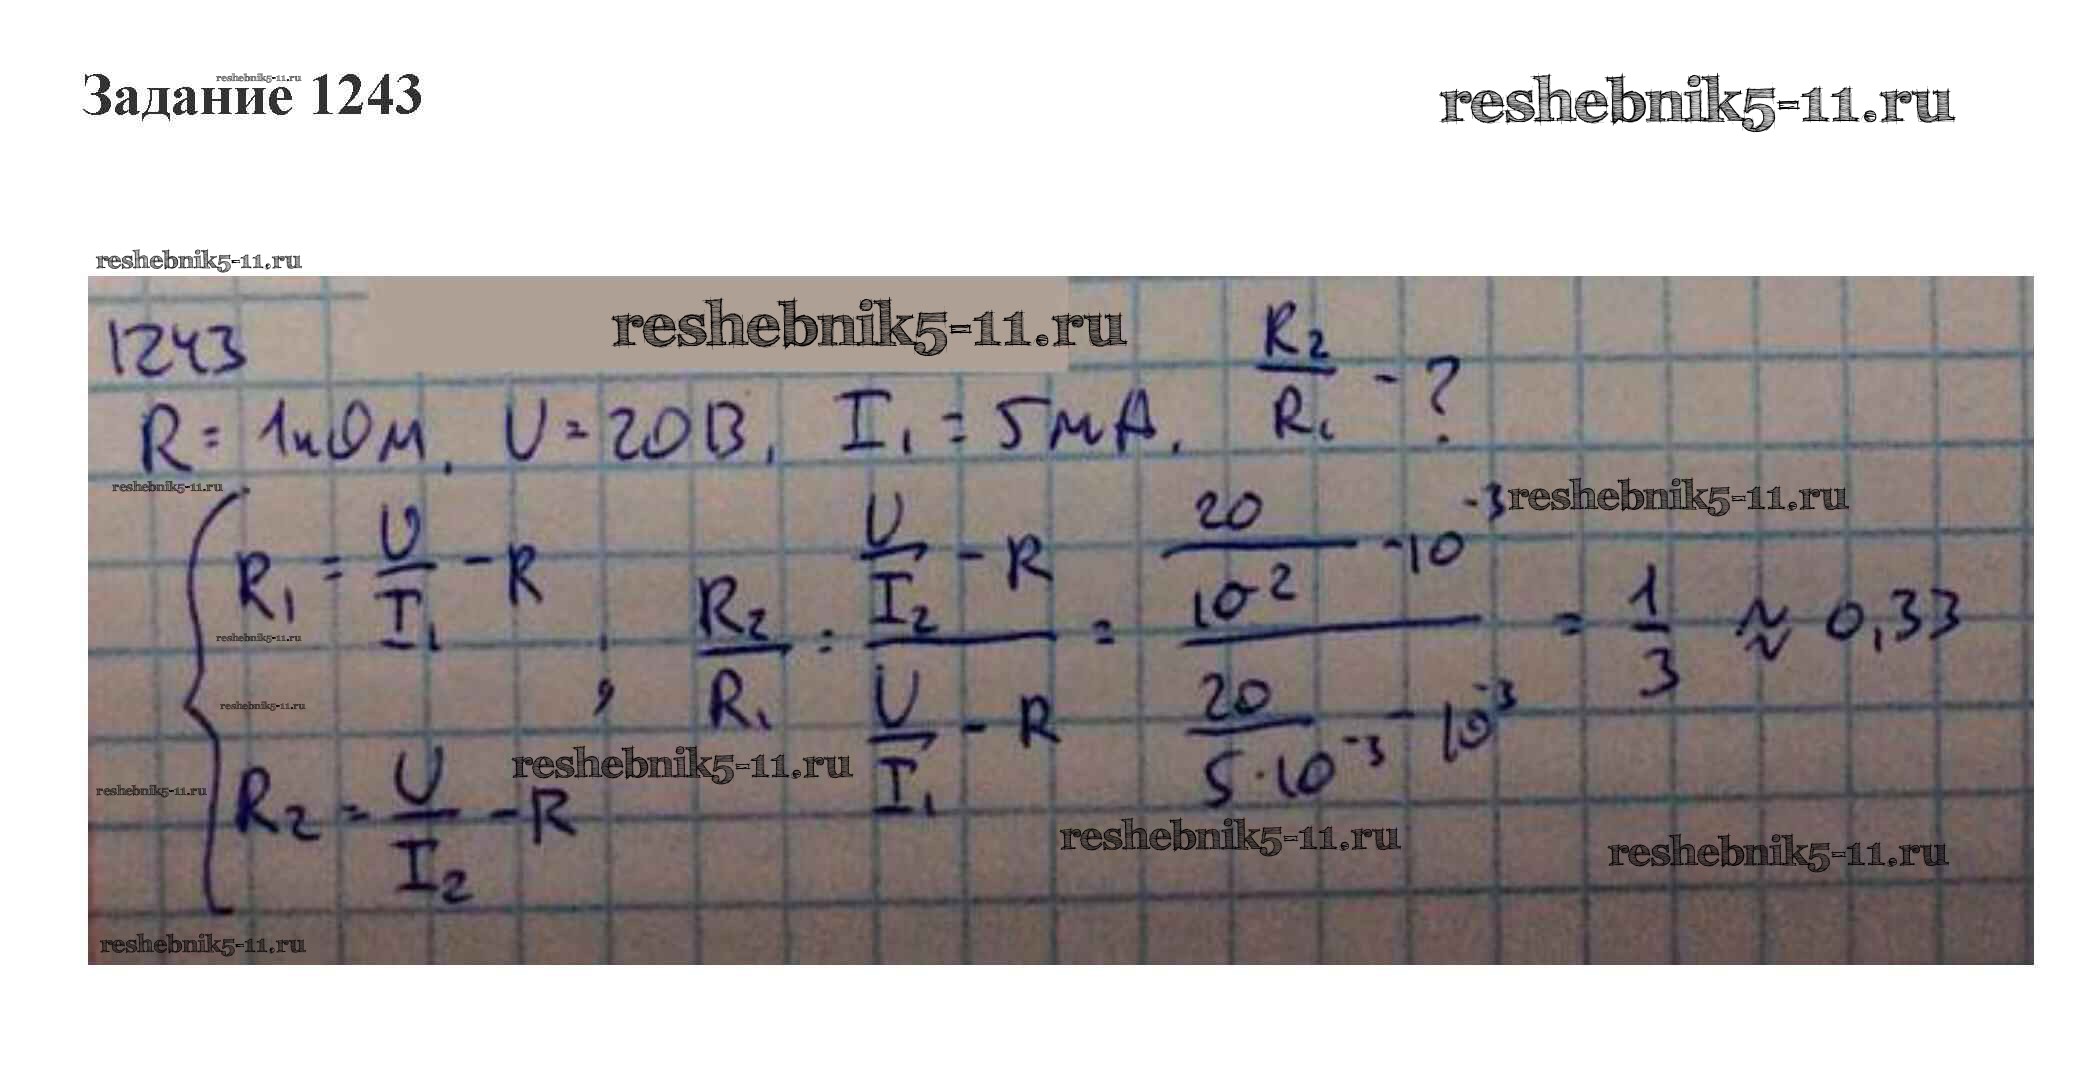 Задание 1243
reshebnik5-11.ru
reshebnik5-11.ru
reshebnik5-11.ru
reshebnik5-11.ru
1243
R = 1кОм. U = 20В, I₁ = 5мА. R₂/R₁ - ?
reshebnik5-11.ru
reshebnik5-11.ru
{ R₁ = U/I₁ - R ; R₂/R₁ = (U/I₂ - R)/(U/I₁ - R) = (20/10⁻² - 10⁻³)/(20/(5·10⁻³) - 10⁻³) = 1/3 ≈ 0,33
reshebnik5-11.ru
reshebnik5-11.ru
reshebnik5-11.ru
reshebnik5-11.ru
R₂ = U/I₂ - R
reshebnik5-11.ru
reshebnik5-11.ru
reshebnik5-11.ru